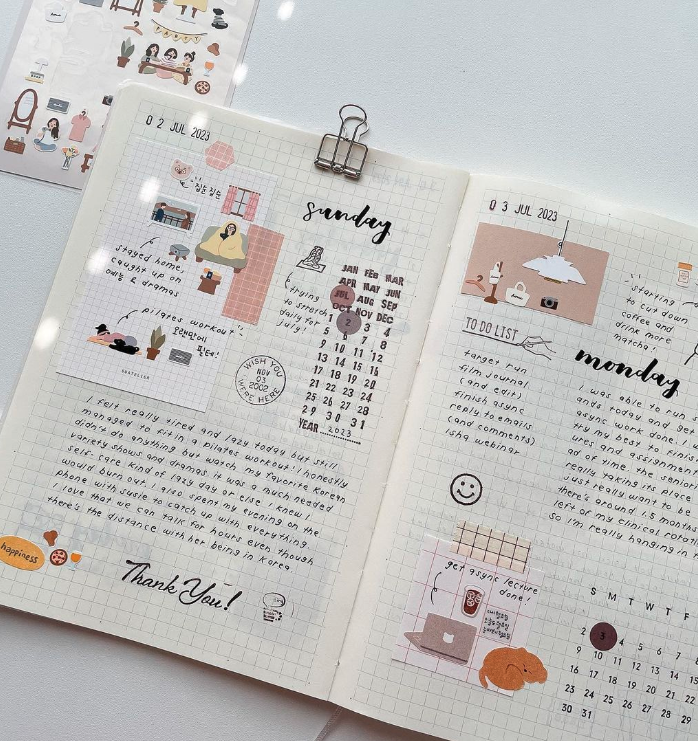 PARTY
02 JUL 2023
집순집순
sunday
stayed home,
caught up on
예능 & dramas
trying
to stretch
daily for
july!
JAN FEB MAR
APR MAY JUN
JUL AUG SEP
OCT NOV DEC
1 2 3 4
5 6 7 8
9 10 11 12
13 14 15 16
17 18 19 20
21 22 23 24
25 26 27 28
29 30 31
YEAR 2023
pilates workout
오랜만에
필테!
WISH YOU
NOV
03
2002
WERE HERE
I felt really tired and lazy today but still
managed to fit in a pilates workout! I honestly
didn't do anything but watch my favorite Korean
variety shows and dramas. it was a much needed
self-care kind of lazy day or else I knew I
would burn out. I also spent my evening on the
phone with susie to catch up with everything.
I love that we can talk for hours even though
there's the distance with her being in Korea
happiness
Thank You!
03 JUL 2023
starting
to cut down
coffee and
drink more
matcha!
TO DO LIST
target run
film journal
(and edit)
finish async
reply to emails
(and comments)
isha webinar
monday
I was able to run
ands today and get
async work done. I w
try my best to finis
ures, and assignment
ad of time. the senior
really taking its place
just really want to be
there's around 1.5 month
left of my clinical rotati
so I'm really hanging in
get async lecture
done!
S M T W T F
2 3 4 5 6 7
9 10 11 12 13 14
16 17 18 19 20 21
23 24 25 26 27 28
30 31